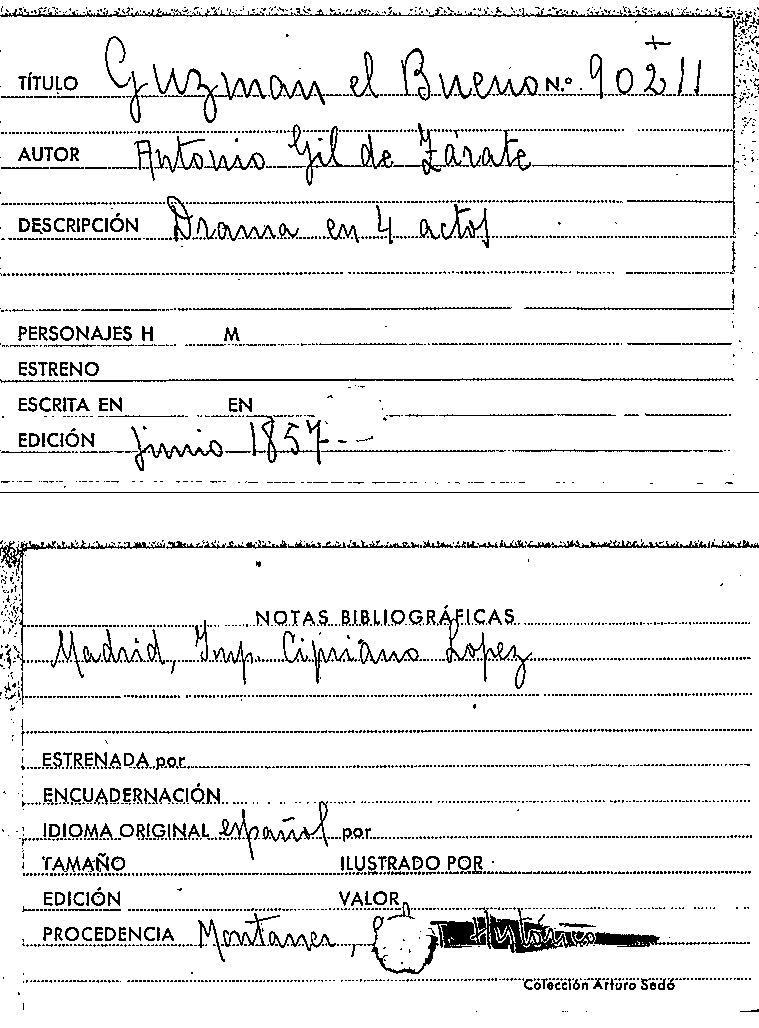 TÍTULO Guzmán el Bueno N.º 90211
AUTOR Antonio Gil de Zárate
DESCRIPCIÓN Drama en 4 actos
PERSONAJES H M
ESTRENO
ESCRITA EN EN
EDICIÓN junio 1857
NOTAS BIBLIOGRÁFICAS
Madrid, Imp. Cipriano Lopez
ESTRENADA por
ENCUADERNACIÓN
IDIOMA ORIGINAL español por
TAMAÑO ILUSTRADO POR
EDICIÓN VALOR
PROCEDENCIA Montaner,
Colección Arturo Sedó